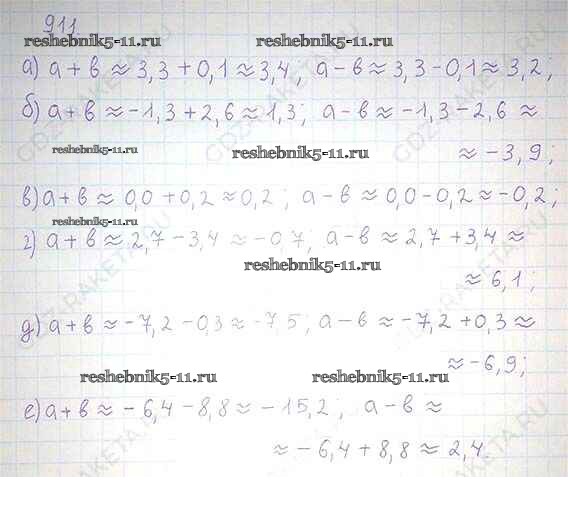 911
reshebnik5-11.ru reshebnik5-11.ru
а) a + b ≈ 3,3 + 0,1 ≈ 3,4; a − b ≈ 3,3 − 0,1 ≈ 3,2;
б) a + b ≈ −1,3 + 2,6 ≈ 1,3; a − b ≈ −1,3 − 2,6 ≈
reshebnik5-11.ru reshebnik5-11.ru
≈ −3,9;
в) a + b ≈ 0,0 + 0,2 ≈ 0,2; a − b ≈ 0,0 − 0,2 ≈ −0,2;
reshebnik5-11.ru
г) a + b ≈ 2,7 − 3,4 ≈ −0,7; a − b ≈ 2,7 + 3,4 ≈
reshebnik5-11.ru
≈ 6,1;
д) a + b ≈ −7,2 − 0,3 ≈ −7,5; a − b ≈ −7,2 + 0,3 ≈
≈ −6,9;
reshebnik5-11.ru reshebnik5-11.ru
е) a + b ≈ −6,4 − 8,8 ≈ −15,2; a − b ≈
≈ −6,4 + 8,8 ≈ 2,4.
GDZ-RAKETA.RU